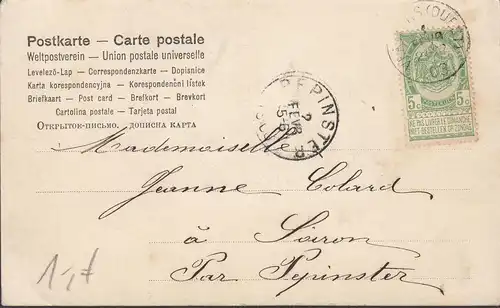 Postkarte — Carte postale
Weltpostverein — Union postale universelle
Levelező-Lap — Correspondenzkarte — Dopisnice
Karta korespondencyjna — Korespondenční lístek
Briefkaart — Post card — Brefkort — Brevkort
Cartolina postale — Tarjeta postal
Открытое-письмо, — дописна карта
PEPINSTER
2
FEVR
5-6
03
5c
5c
NE PAS LIVRER LE DIMANCHE
NIET BESTELLEN OP ZONDAG
Mademoiselle
Jeanne Colard
à Soiron
Par Pepinster